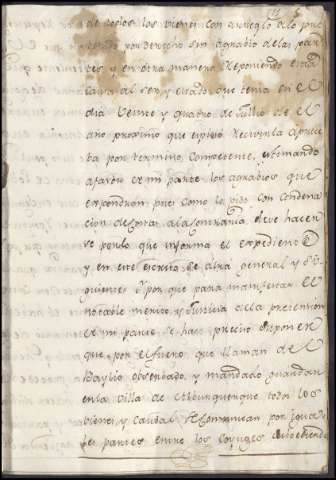 de todos los vienes con arreglo a lo pre
venido por derecho sin agrabio de las par
tes y en otra manera Reponiendo esta
causa al ser y estado que tenia en el
dia Veinte y quatro de Julio de el
año proximo que espiro Recivirla aprue
ba por termino competente, estimando
a favor de mi parte los agrabios que
expondran pues como lo pido con condena
cion de costas a la contraria deve hacer
se por lo que informa el expediente
y en este escrito se dira general y si
guiente y por que para manifestar el
notable merito y Justicia de la pretension
de mi parte se hace preciso suponer
que por el fuero que llaman de el
Baylio obserbado, y mandado guardar
en la villa de Alburquerque todos los
vienes y caudal se comunican por iguales
partes entre los coyuges